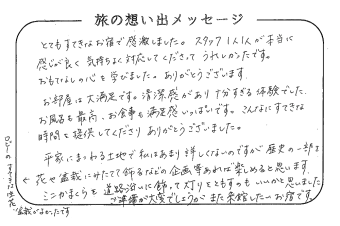 旅の想い出メッセージ
とてもすてきなお宿で感激しました。スタッフ1人1人が本当に
感じが良く気持ちよく対応してくださって うれしかったです。
おもてなしの心を学びました。ありがとうございます。
お部屋は大満足です。清潔感があり十分すぎる体験でした。
お風呂も最高、お食事も満足感いっぱいです。こんなにすてきな
時間を提供してくださり ありがとうございました。
平家にまつわる土地で私はあまり詳しくないのですが 歴史の一部を
花や盆栽にみたてて飾るなどの企画等あれば楽しめると思います。
ミニかまくらを道路沿いに飾って灯りをともすのもいいかと思いました
準備が大変でしょうが また来館したいお宿です。
ロビーの
盆栽がよかったです